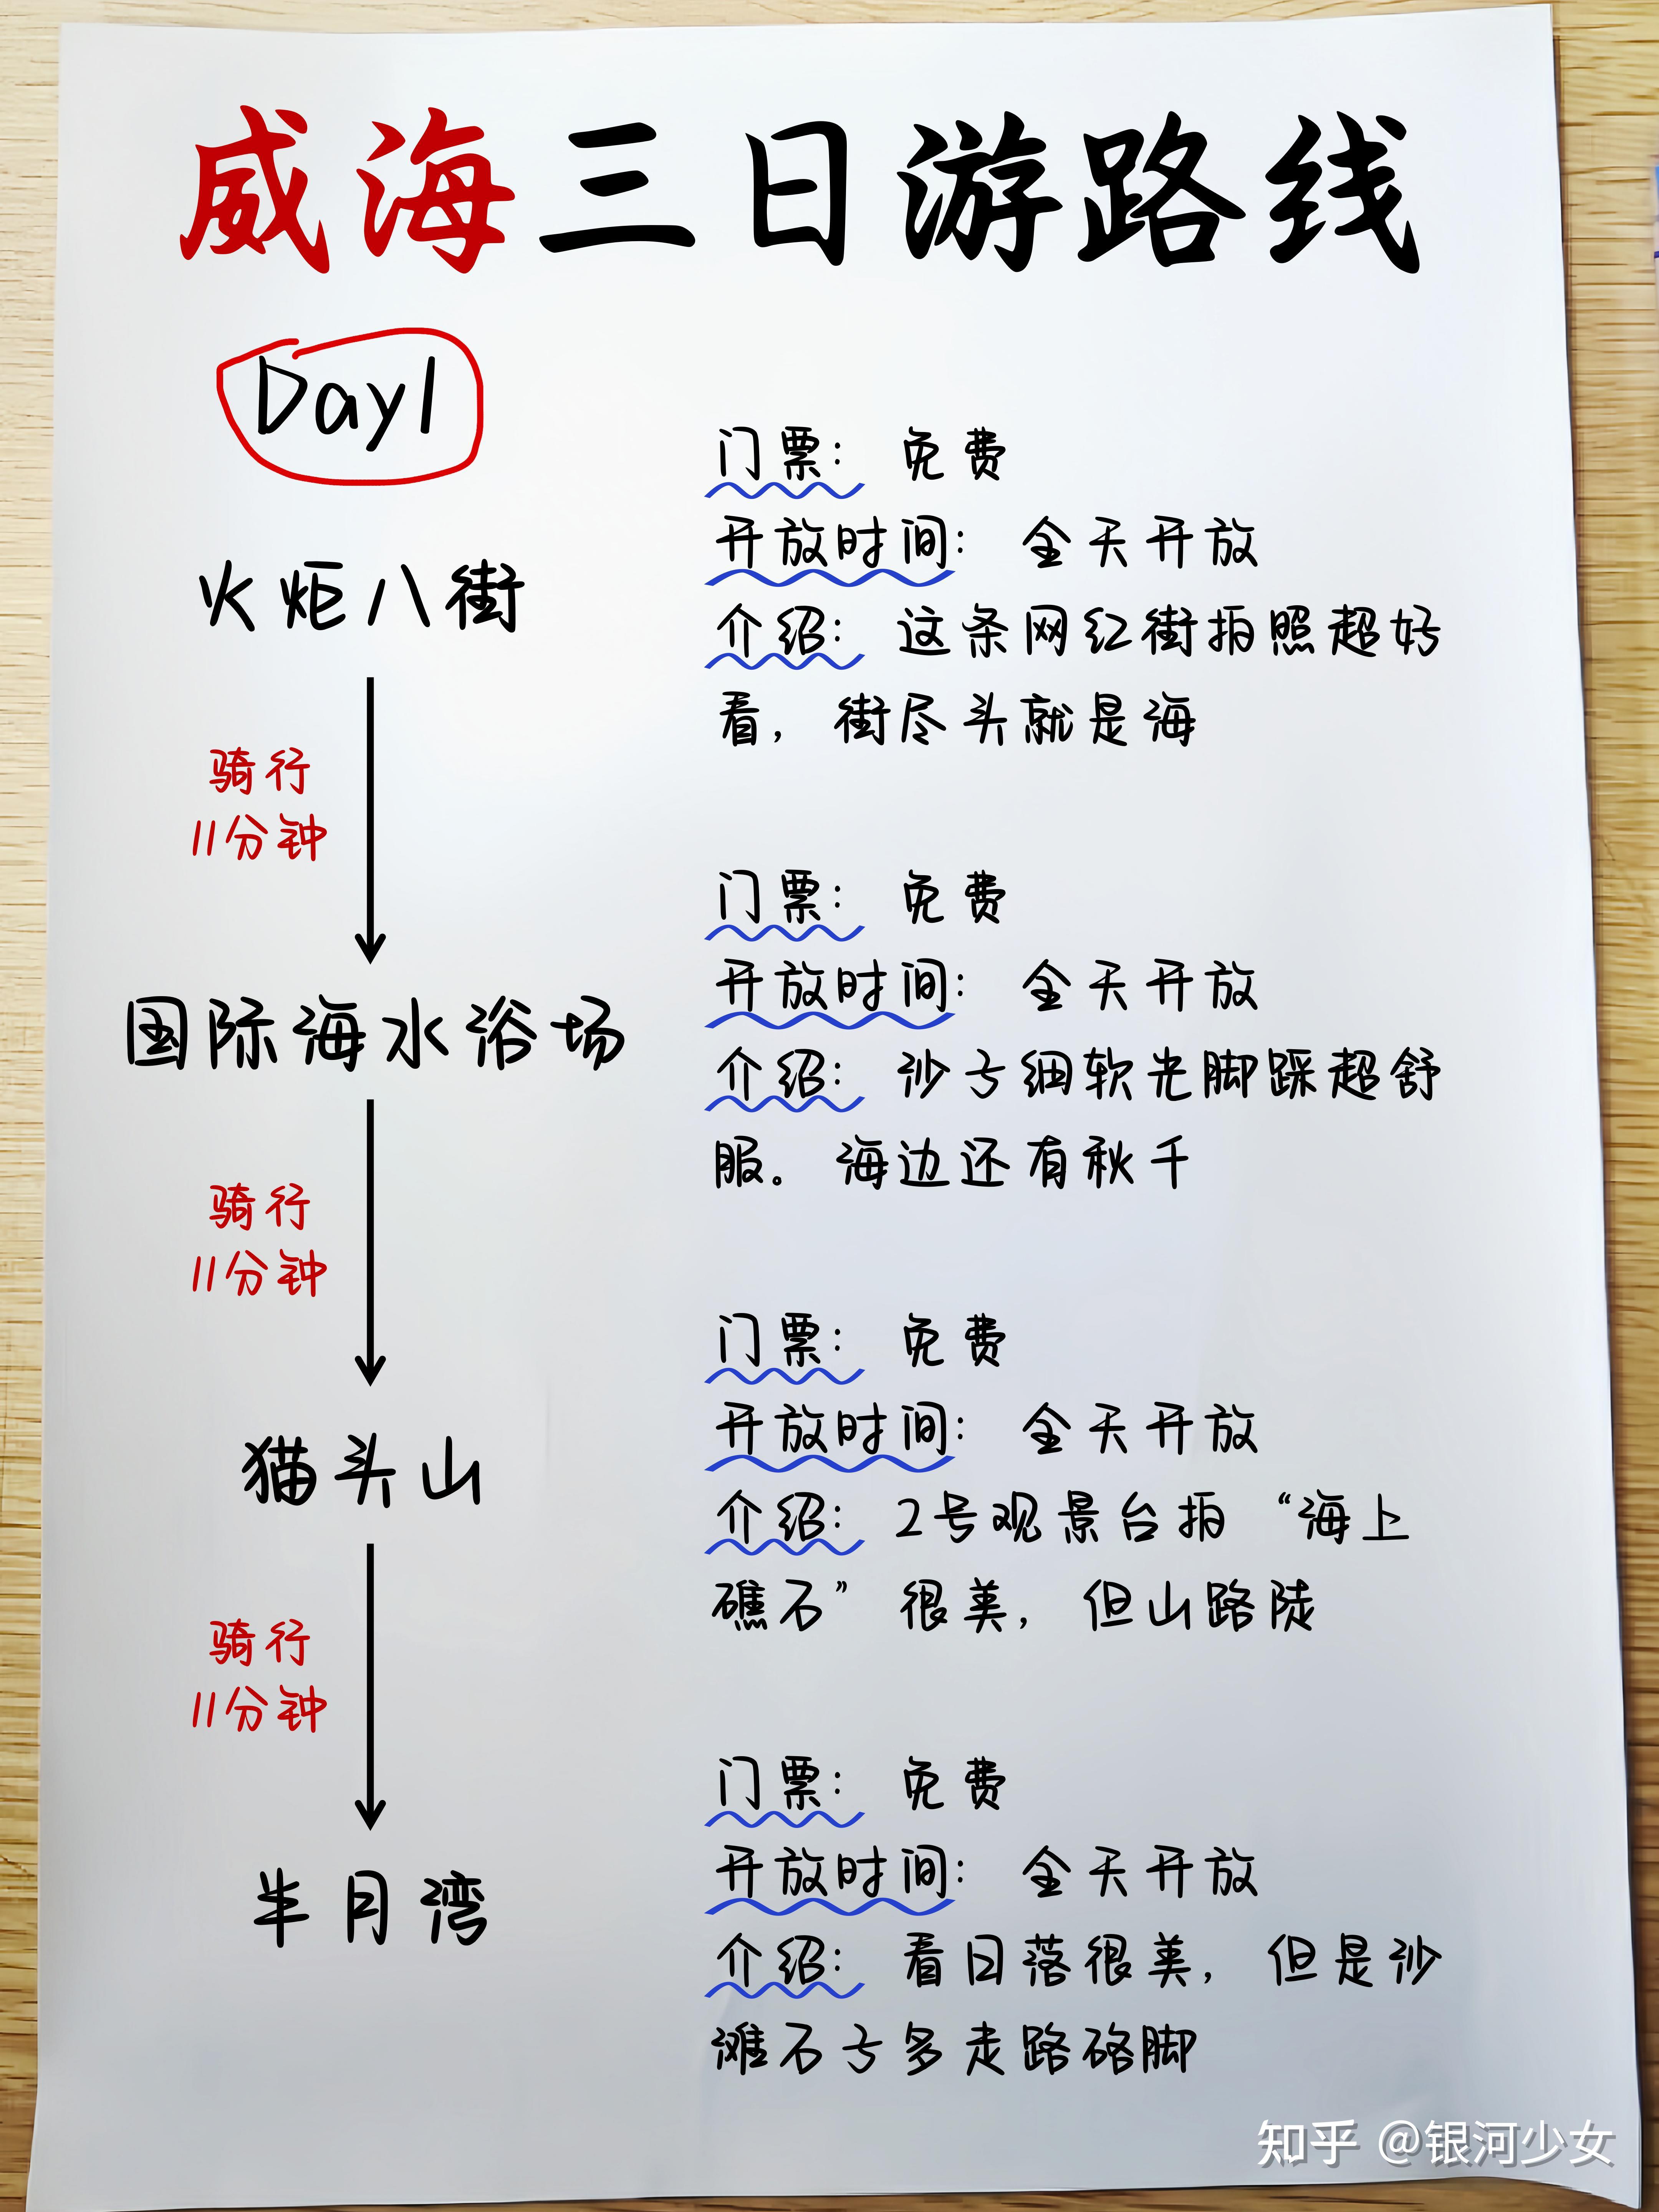 威海三日游路线
Day1
火炬八街
门票： 免费
开放时间： 全天开放
介绍： 这条网红街拍照超好
看，街尽头就是海
骑行
11分钟
国际海水浴场
门票： 免费
开放时间： 全天开放
介绍： 沙子细软光脚踩超舒
服。海边还有秋千
骑行
11分钟
猫头山
门票： 免费
开放时间： 全天开放
介绍： 2号观景台拍“海上
礁石”很美，但山路陡
骑行
11分钟
半月湾
门票： 免费
开放时间： 全天开放
介绍： 看日落很美，但是沙
滩石子多走路硌脚
知乎 @银河少女